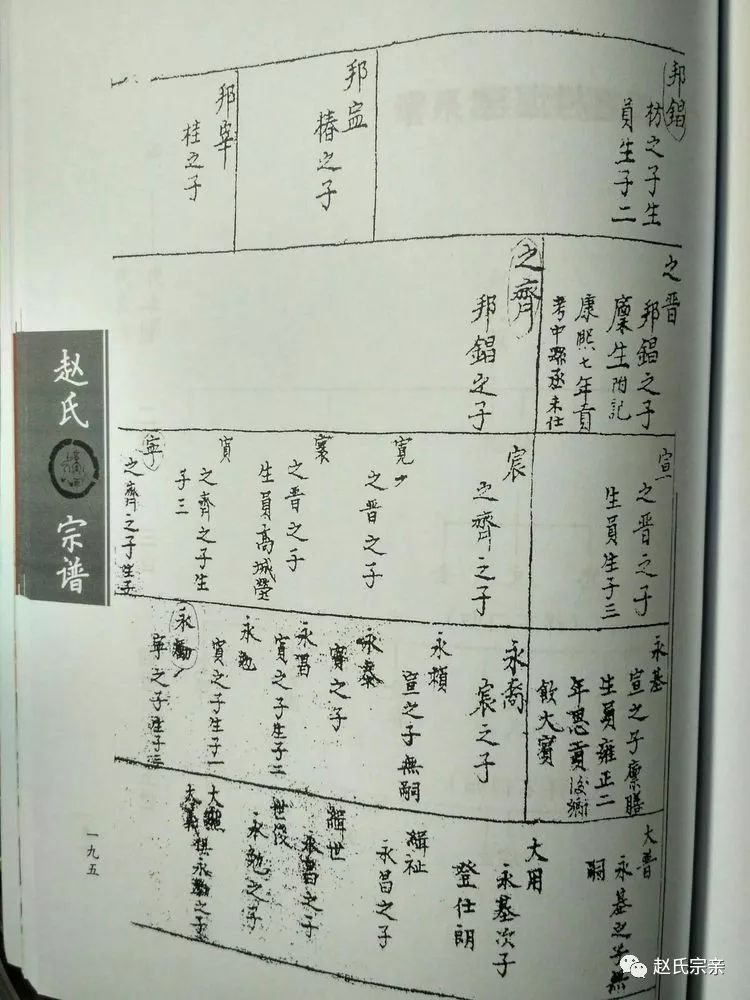 邦錩
枋之子生
員生子二
邦盆
椿之子
邦宰
桂之子
之晋
邦錩之子
廩生附記
康熙七年貢
考中縣丞未仕
之齊
邦錩之子
宣
之晋之子
生員生子三
宸
之齊之子
寬
之晋之子
之晋之子
生員高城塋
賓
之齊之子生
子三
寧
之齊之子生子
永基
宣之子廩膳
生員雍正二
年恩貢後鄉
飲大賓
永裔
宸之子
永頫
宣之子無嗣
永泰
賓之子
永昌
賓之子生子二
永勉
賓之子生子一
永勷
寧之子生子三
大普
永基之子無
嗣
大用
永基次子
登仕朗
緝祉
永昌之子
緝世
永昌之子
世俊
永勉之子
大熙
永勷之子
赵氏
宗谱
一九五
赵氏宗亲